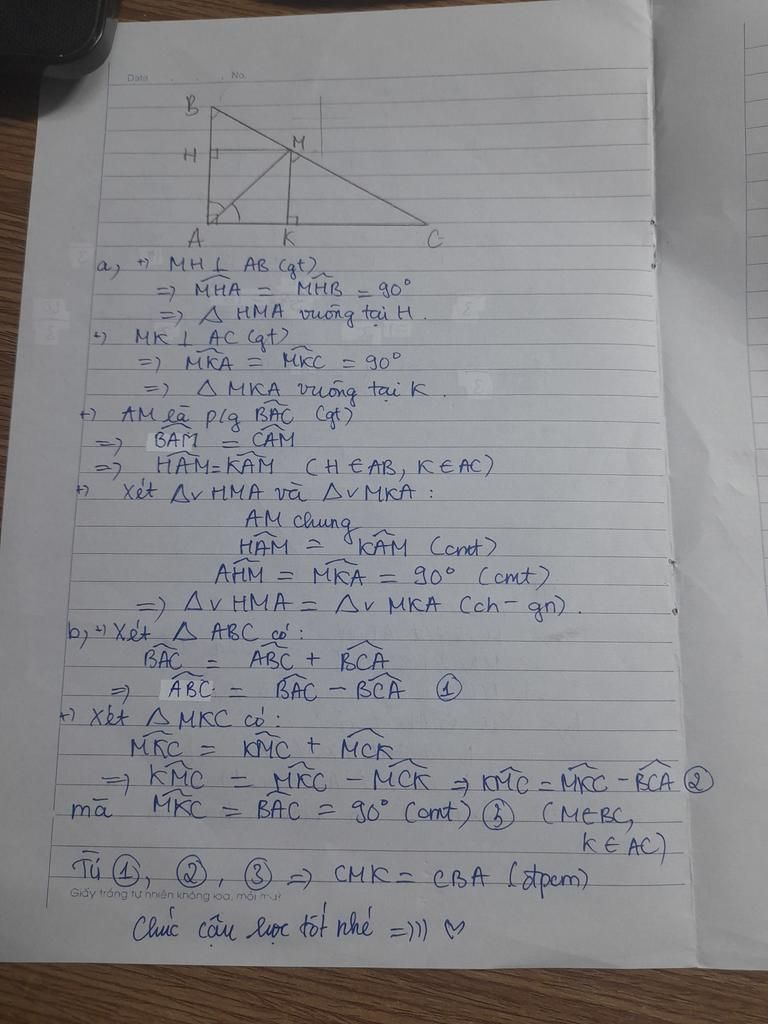 Date . . . No.
B
H
M
A
K
C
a, +) MH ⊥ AB (gt)
=> \widehat{MHA} = \widehat{MHB} = 90°
=> Δ HMA vuông tại H.
+) MK ⊥ AC (gt)
=> \widehat{MKA} = \widehat{MKC} = 90°
=> Δ MKA vuông tại K.
+) AM là p/g \widehat{BAC} (gt)
=> \widehat{BAM} = \widehat{CAM}
=> \widehat{HAM} = \widehat{KAM} (H ∈ AB, K ∈ AC)
+) Xét Δv HMA và Δv MKA :
AM chung
\widehat{HAM} = \widehat{KAM} (cmt)
\widehat{AHM} = \widehat{MKA} = 90° (cmt)
=> Δv HMA = Δv MKA (ch - gn).
b, +) Xét Δ ABC có :
\widehat{BAC} = \widehat{ABC} + \widehat{BCA}
=> \widehat{ABC} = \widehat{BAC} - \widehat{BCA} ①
+) Xét Δ MKC có :
\widehat{MKC} = \widehat{KMC} + \widehat{MCK}
=> \widehat{KMC} = \widehat{MKC} - \widehat{MCK} => \widehat{KMC} = \widehat{MKC} - \widehat{BCA} ②
mà \widehat{MKC} = \widehat{BAC} = 90° (cmt) ③ (M∈BC,
K ∈ AC)
Từ ①, ②, ③ => CMK = CBA (đpcm)
Giấy trắng tự nhiên không lóa, mỏi mắt
Chúc cậu học tốt nhé =))) ♡